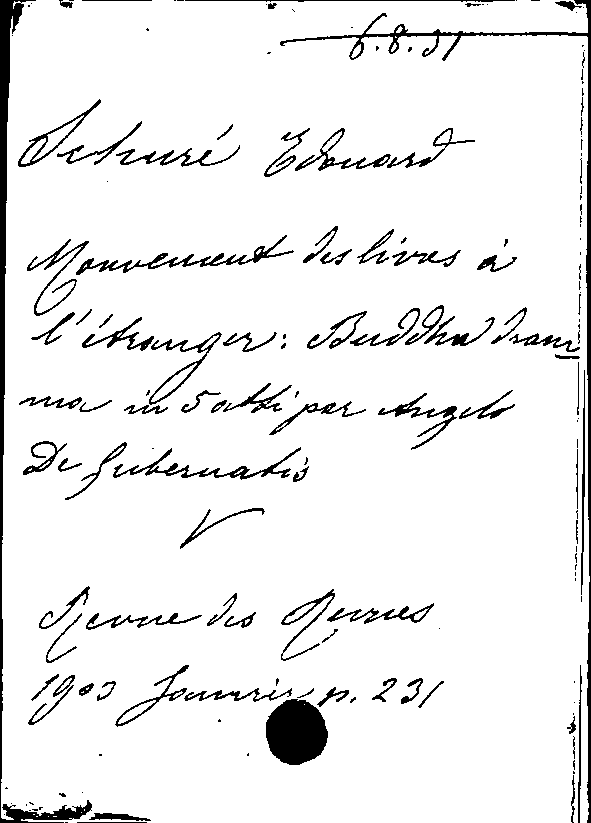 6.8.31
Schuré Edouard
Mouvement des livres à
l'étranger: Buddha dram
ma in 5 atti par Angelo
De Gubernatis
V
Revue des Revues
1903 Janvier p. 231